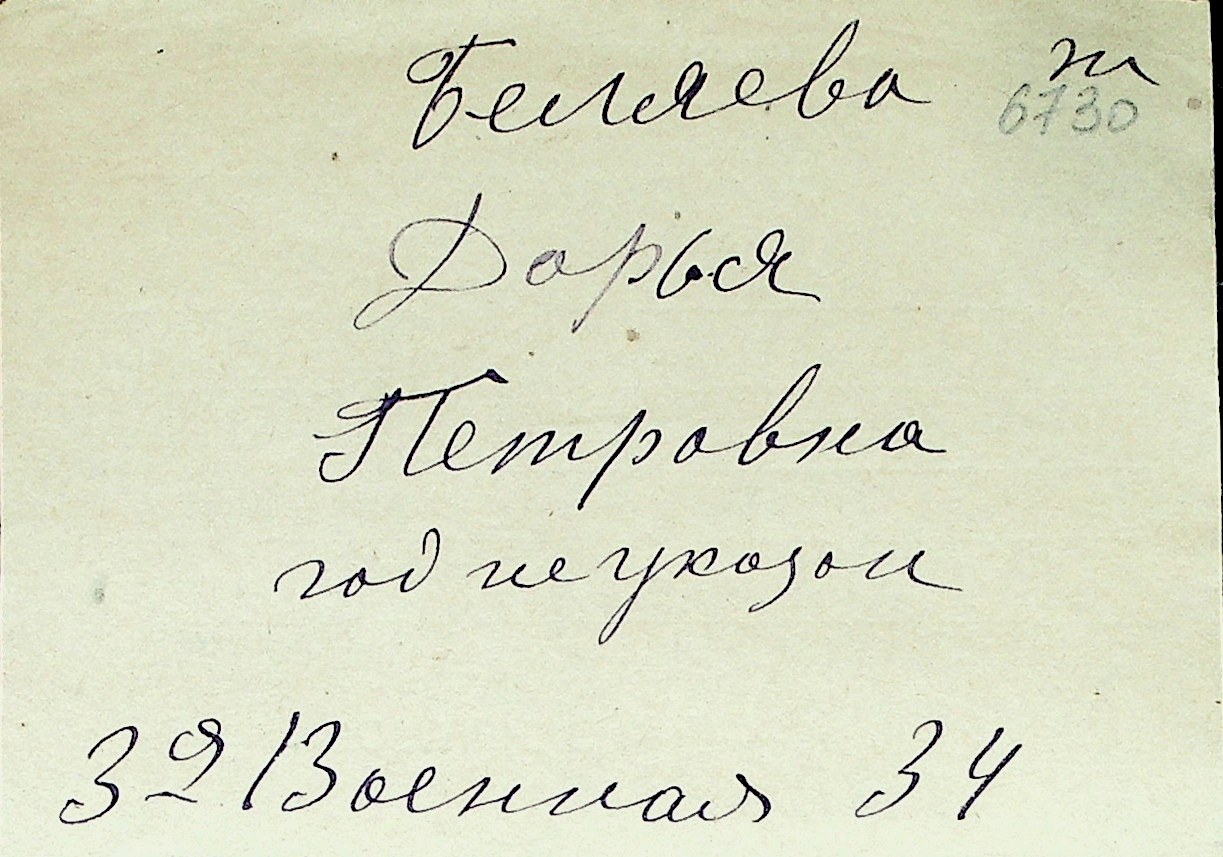 Беляева т
6730
Дарья
Петровна
год не указан
3я Военная 34